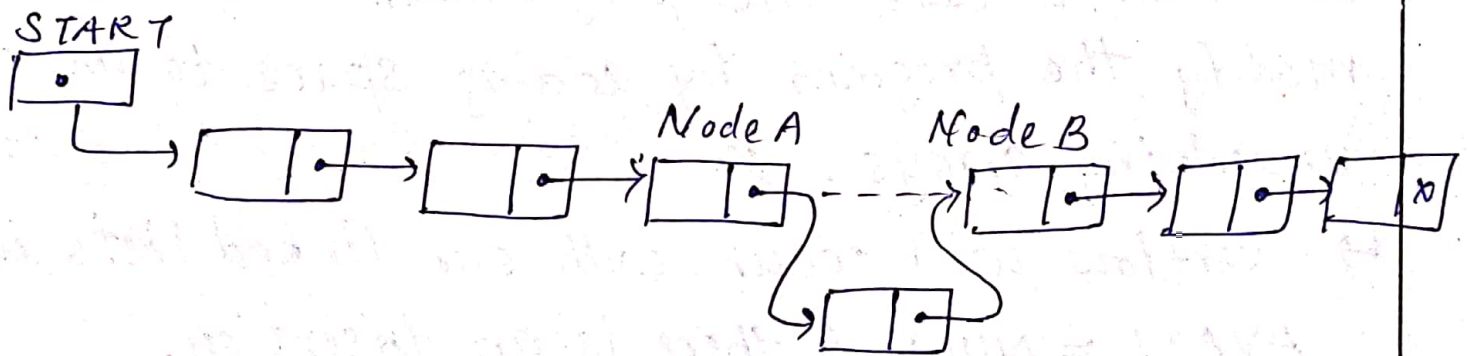 START
Node A Node B
X